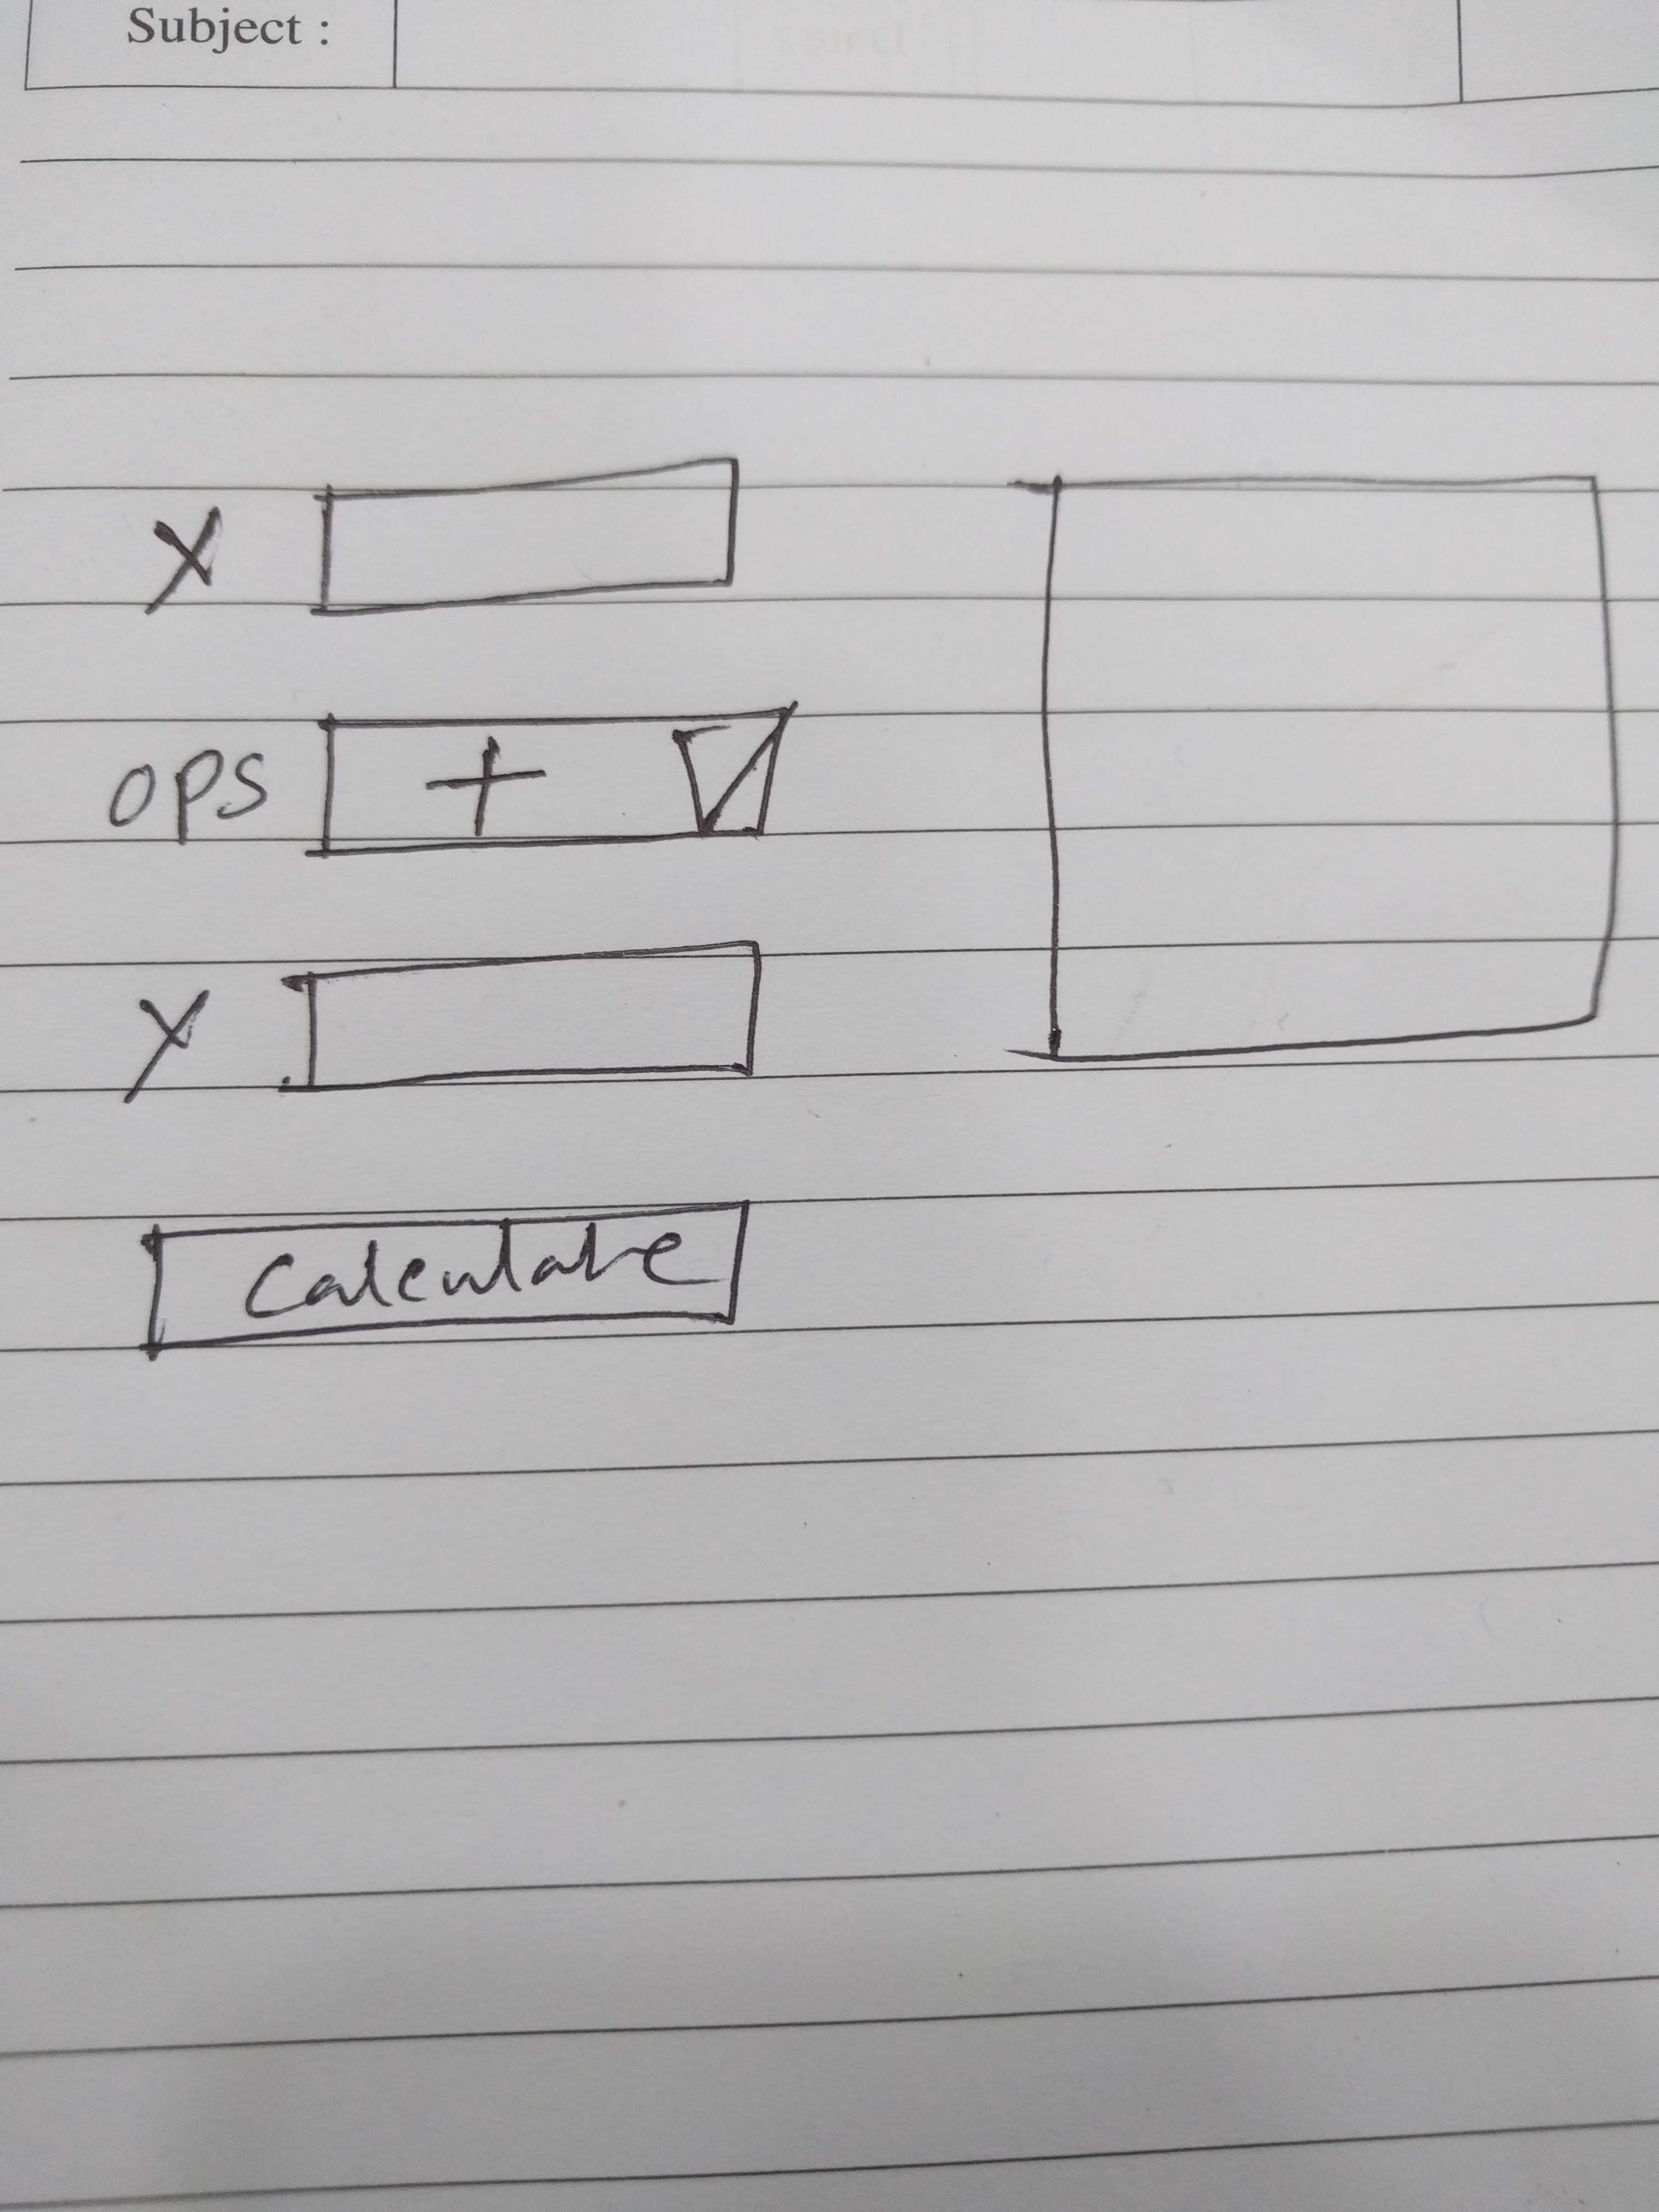 Subject :
X
ops + 
Y
Calculate